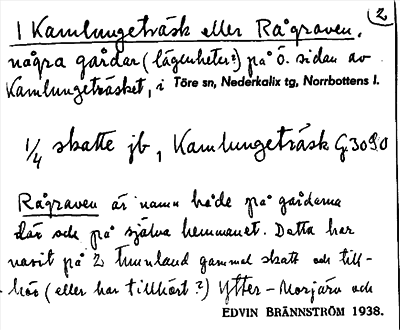 2
1 Kamlungeträsk eller Rågraven,
några gårdar (lägenheter?) på ö. sidan av
Kamlungeträsket, i Töre sn, Nederkalix tg, Norrbottens l.
1/4 skatte jb, Kamlungeträsk G.3090
Rågraven är namn både på gårdarna
där och på själva hemmanet. Detta har
varit på 2 tunnland gammal skatt och till-
hör (eller har tillhört?) Ytter-Morjärv och
EDVIN BRÄNNSTRÖM 1938.